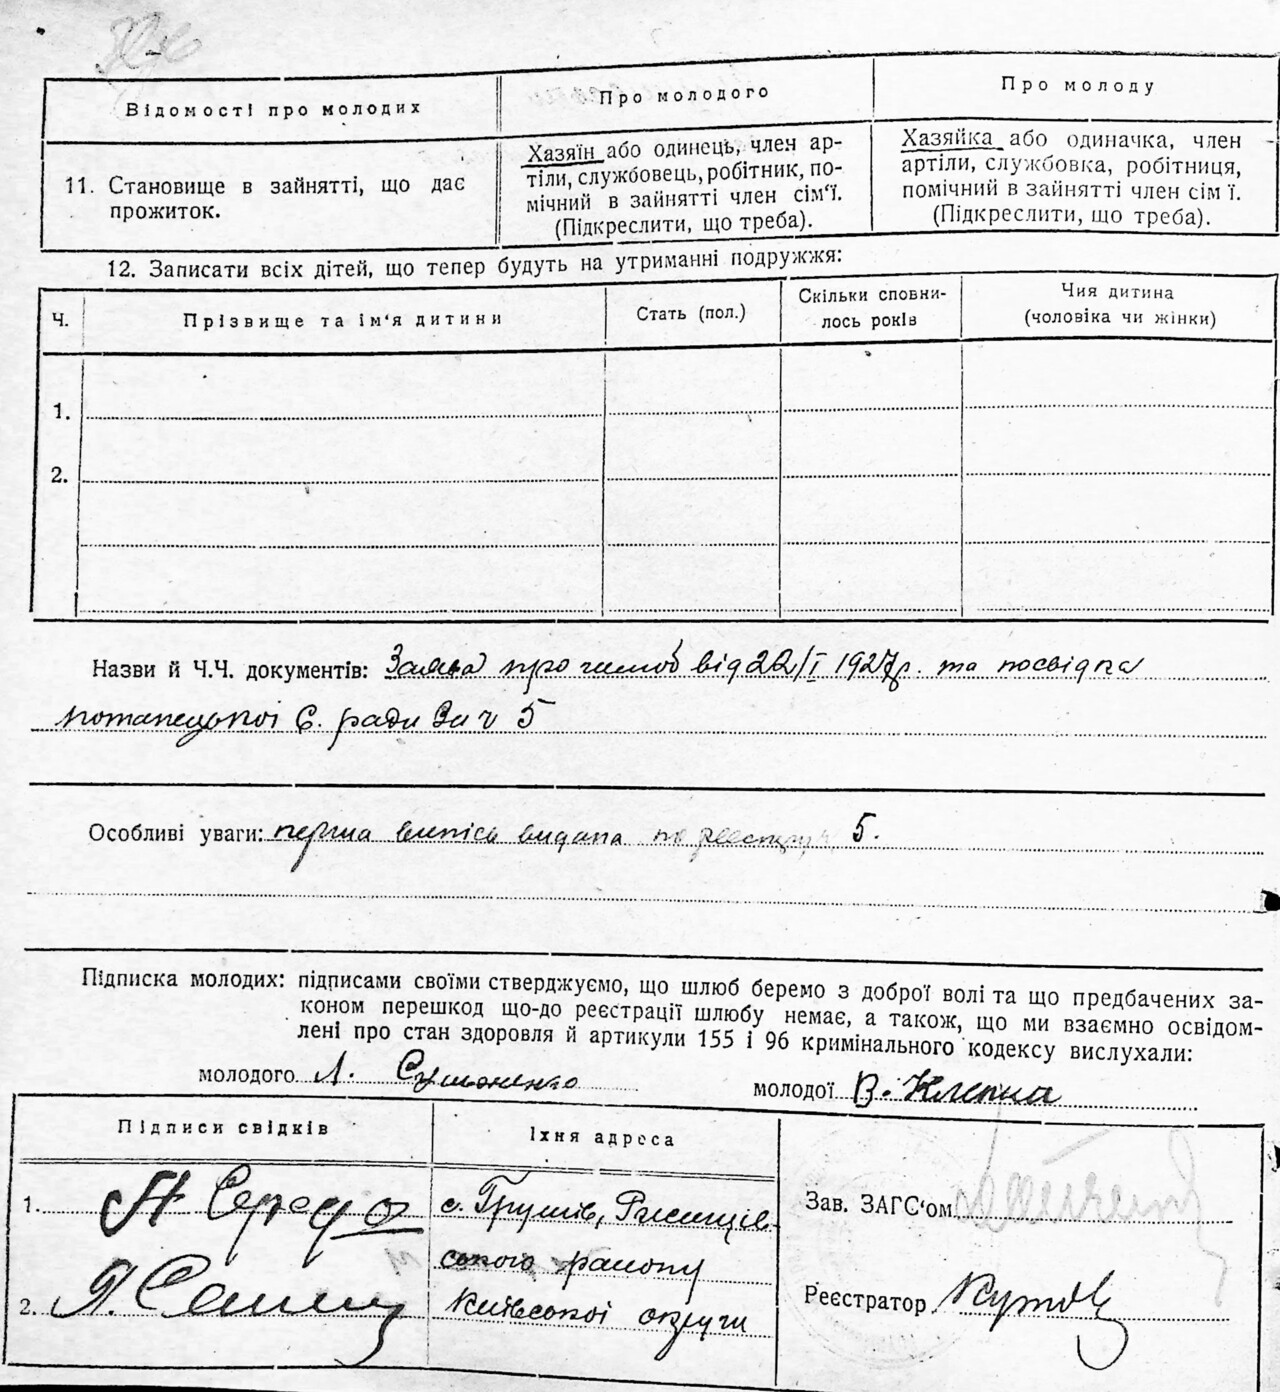 Відомості про молодих
Про молодого
Про молоду
11. Становище в зайнятті, що дає прожиток.
Хазяїн або одинець, член ар-
тіли, службовець, робітник, по-
мічний в зайнятті член сім'ї.
(Підкреслити, що треба).
Хазяйка або одиначка, член
артіли, службовка, робітниця,
помічний в зайнятті член сім ї.
(Підкреслити, що треба).
12. Записати всіх дітей, що тепер будуть на утриманні подружжя:
Ч.
Прізвище та ім'я дитини
Стать (пол.)
Скільки сповни-
лось років
Чия дитина
(чоловіка чи жінки)
1.
2.
Назви й Ч.Ч. документів: Заява про шлюб від 22/I 1927р. та посвідка
потапецької С. ради За ч 5
Особливі уваги: перша випись видана по реєстру 5.
Підписка молодих: підписами своїми стверджуємо, що шлюб беремо з доброї волі та що предбачених за-
коном перешкод що-до реєстрації шлюбу немає, а також, що ми взаємно освідом-
лені про стан здоровля й артикули 155 і 96 кримінального кодексу вислухали:
молодого
молодої В. Клепна
Підписи свідків
Їхня адреса
1. Середа
с. Грушів, Ржищів-
ського району
2.
Київської округи
Зав. ЗАГС'ом
Реєстратор